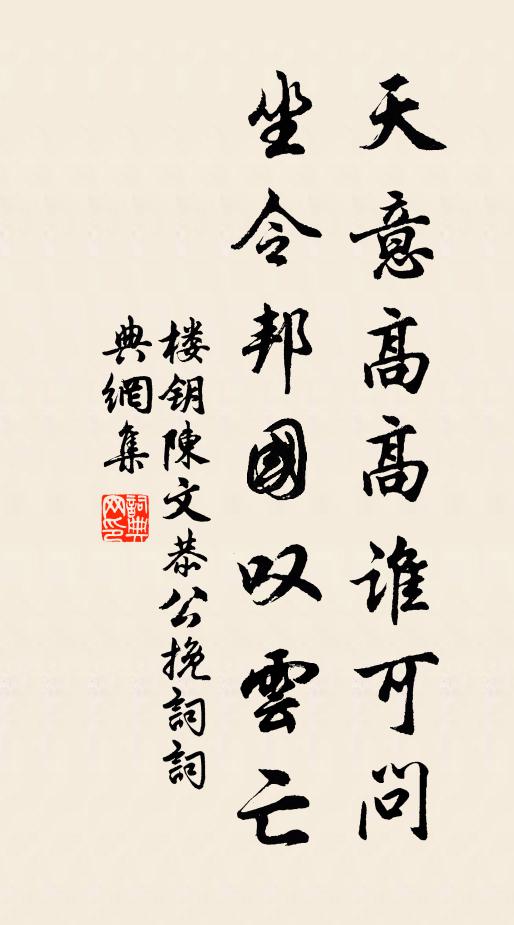 天意髙髙谁可问
坐令邦國叹雲亡
楼钥陳文恭公挽詞詞
典網集
詞典网印